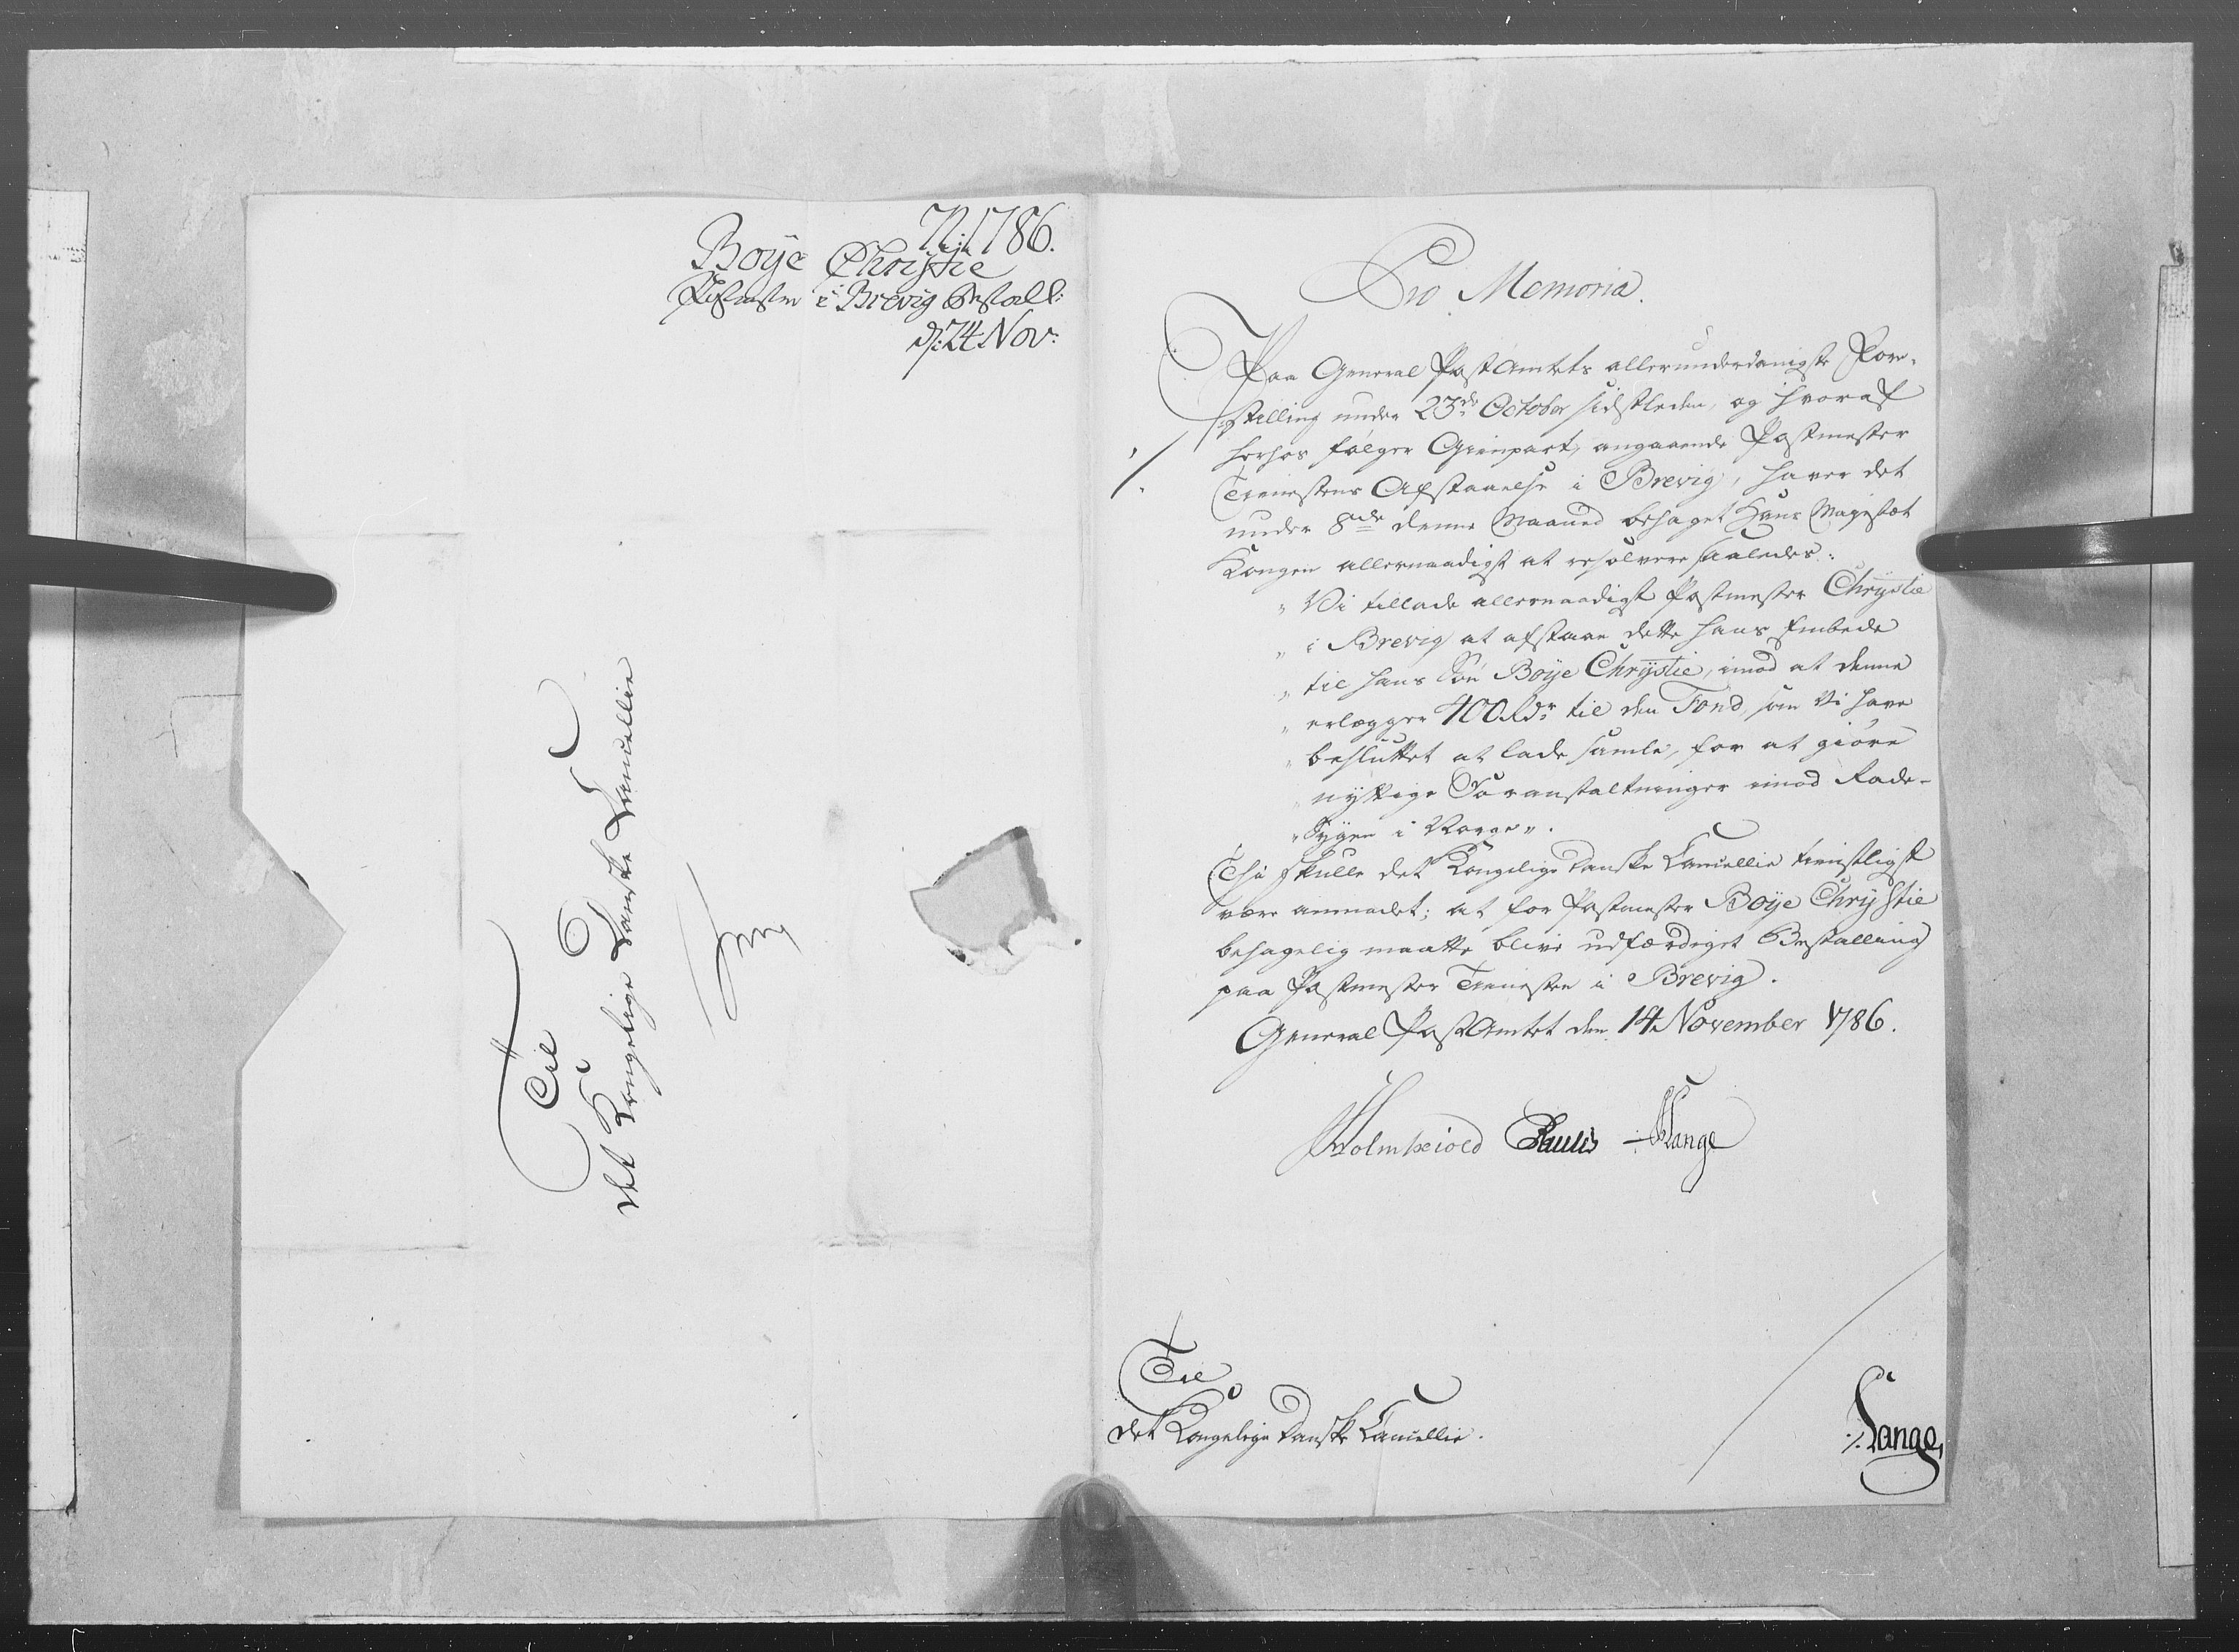 N: 1786.
Boye Christie
Postmester i Brevig Bestall:
d: 24 Nov:
Til
det Kongelige Danske Cancellie
Pro Memoria.
Paa General PostAmtets allerunderdanigste Fore-
stilling under 23de October sidstleden, og hvoraf
herhos følger Gienpart, angaaende Postmester
Tienestens Afstaaelse i Brevig, haver det
under 8de denne Maaned behaget Hans Majestæt
Kongen allernaadigst at resolvere saaledes:
" Vi tillade allernaadigst Postmester Chrystie
" i Brevig at afstaae dette hans Embede
" til hans Søn Boye Chrystie, imod at denne
" erlægger 400 Rdr til den Fond, som Vi have
" besluttet at lade samle, for at giøre
" nyttige Foranstaltninger imod Rade-
" Sygen i Norge".
Thi skulle det Kongelige Danske Cancellie tienstligst
være anmodet; at for Postmester Boye Chrystie
behagelig maatte blive udfærdiget Bestalling
paa Postmester Tienesten i Brevig.
General PostAmtet den 14 November 1786.
Holmskiold Paulis Lange
Til
det Kongelige Danske Cancellie.
Lange,